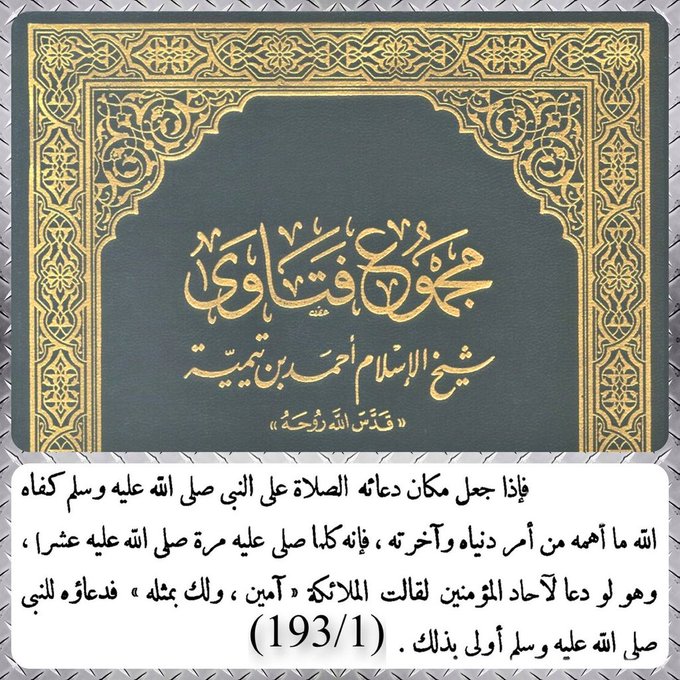 مجموع فتاوى
شيخ الإسلام أحمد بن تيمية
«قدس الله روحه»
فإذا جعل مكان دعائه الصلاة على النبى صلى الله عليه وسلم كفاه
الله ما أهمه من أمر دنياه وآخرته ، فإنه كلما صلى عليه مرة صلى الله عليه عشراً ،
وهو لو دعا لآحاد المؤمنين لقالت الملائكة «آمين ، ولك بمثله» فدعاؤه للنبى
صلى الله عليه وسلم أولى بذلك . (193/1)